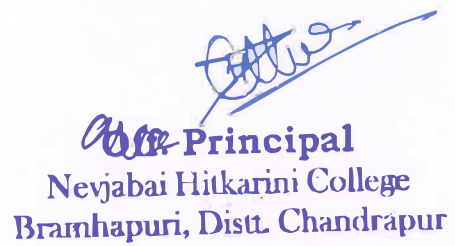 Principal
Nevjabai Hitkarini College
Bramhapuri, Distt. Chandrapur